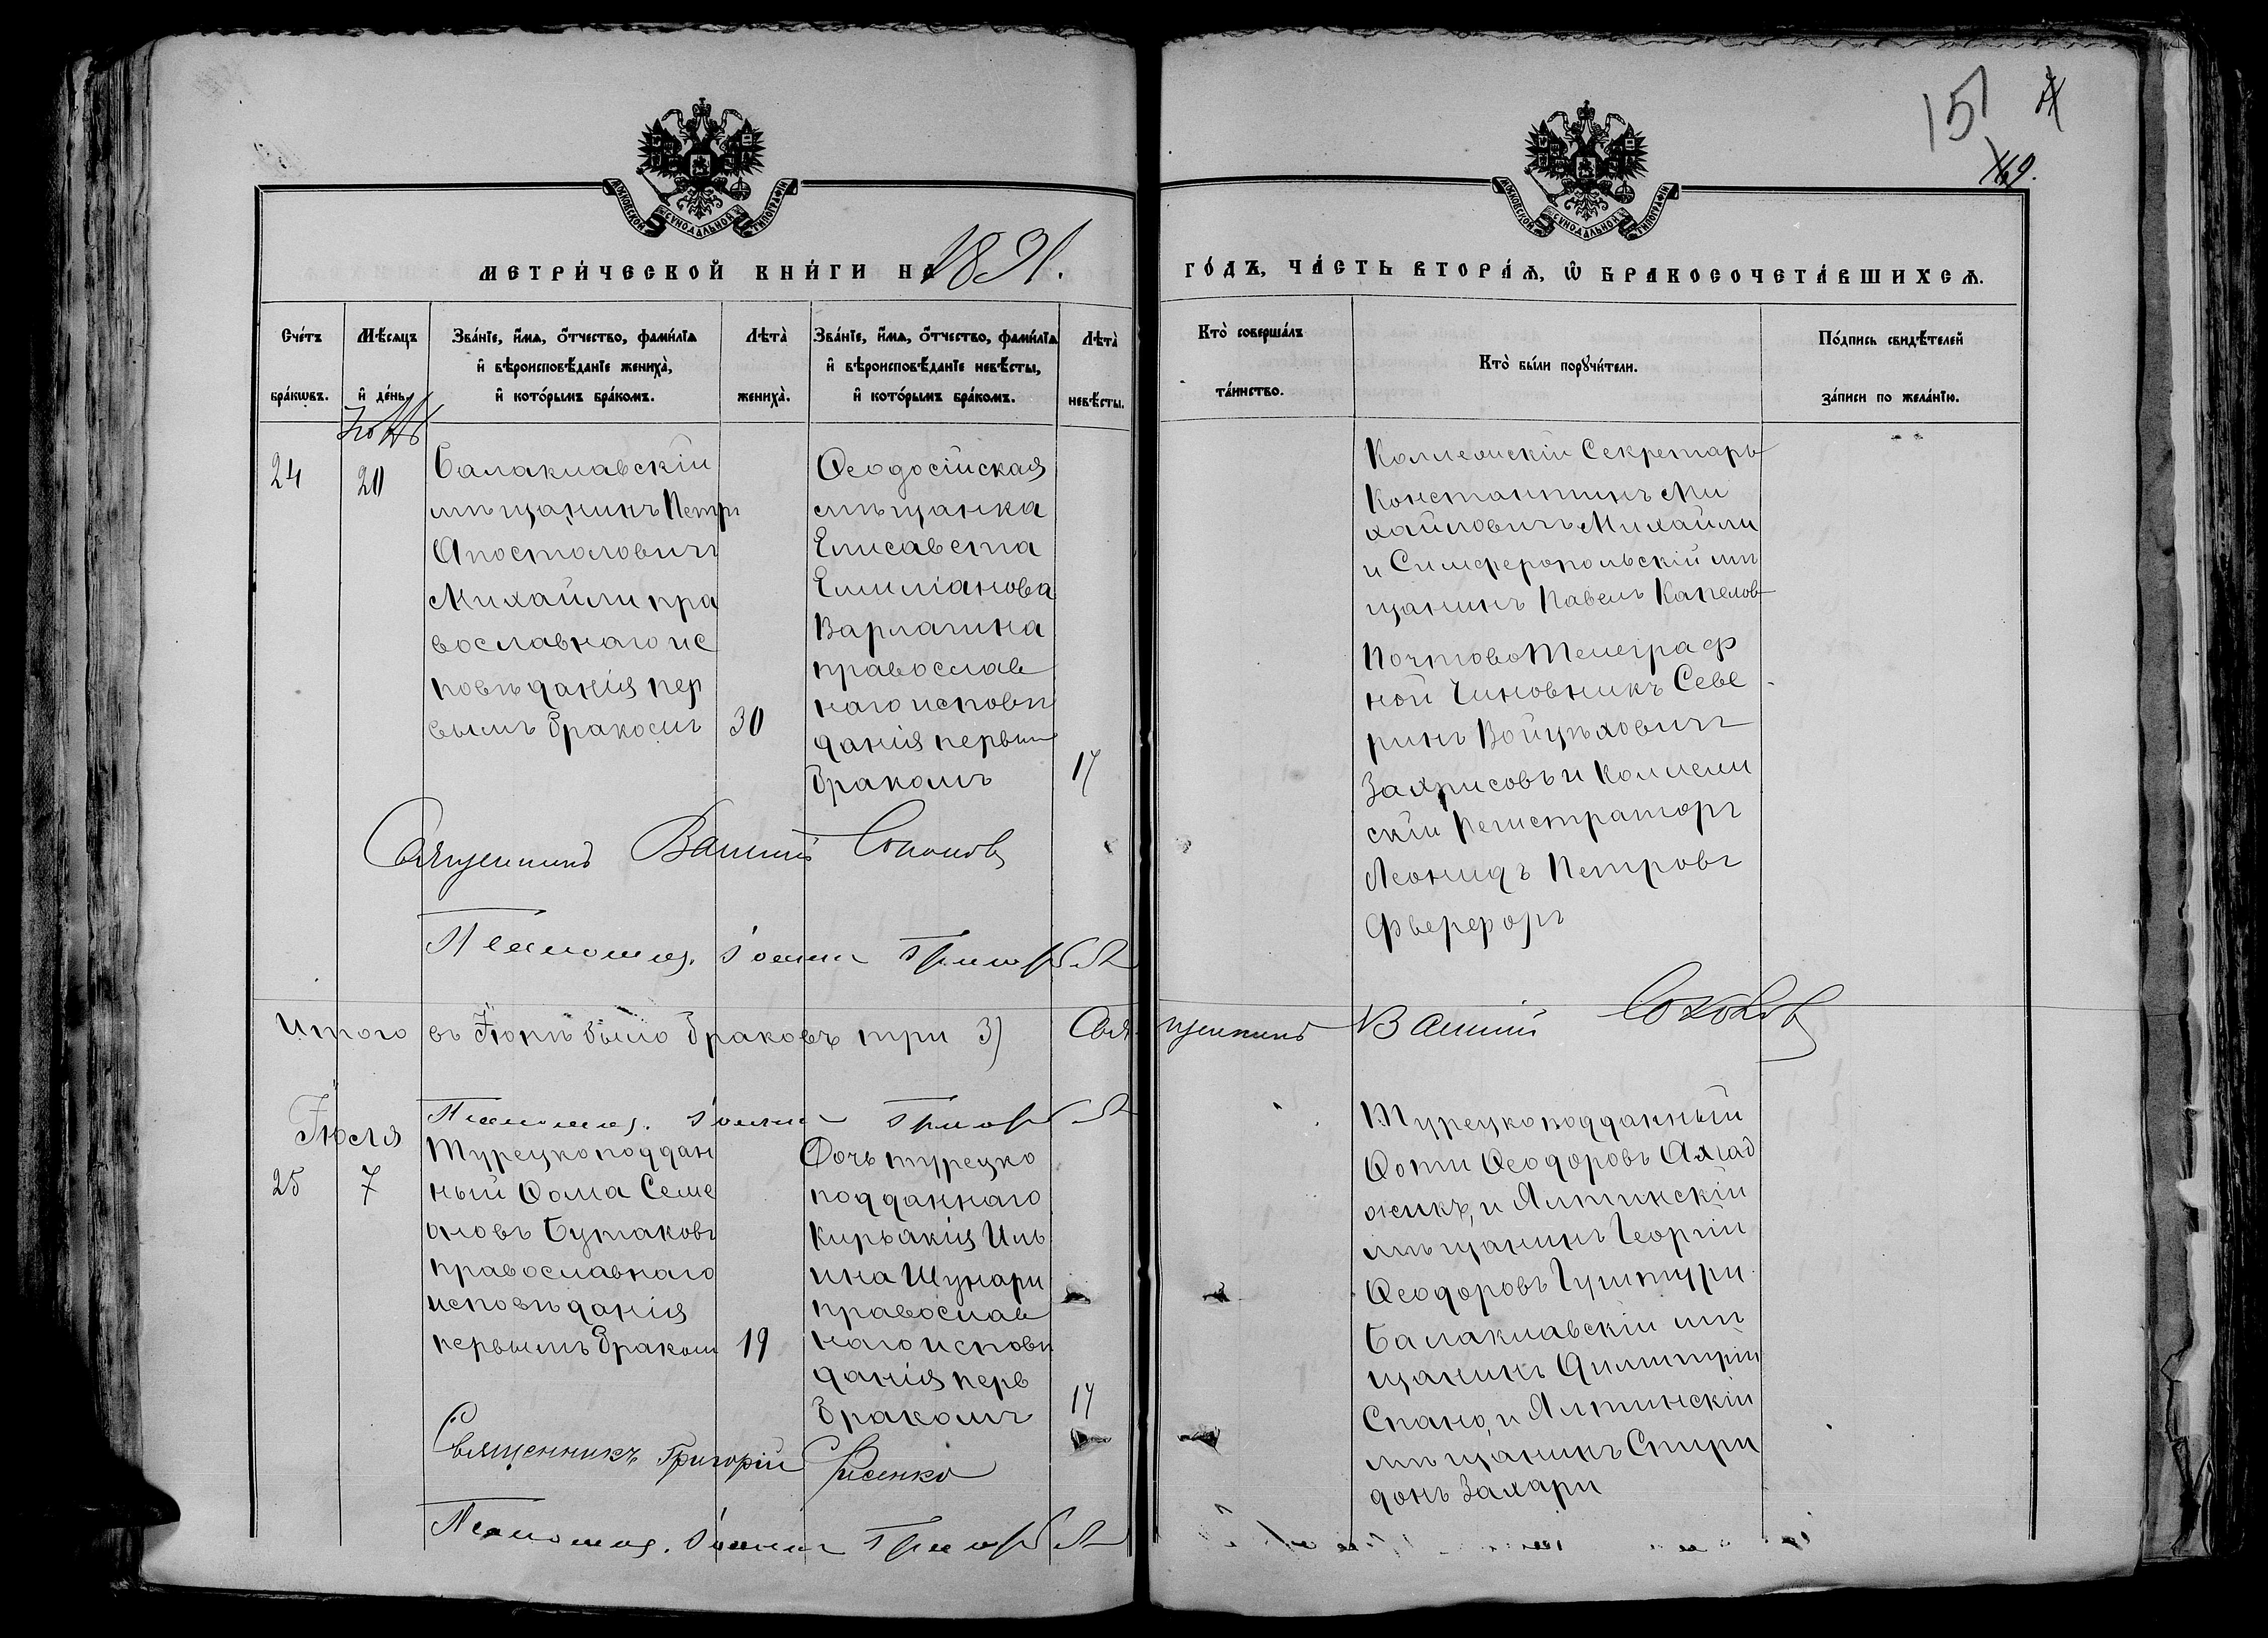 151
169.
МОСКОВСКОЙ СѴНОДАЛЬНОЙ ТИПОГРАФІИ
МОСКОВСКОЙ СѴНОДАЛЬНОЙ ТИПОГРАФІИ
МЕТРИ́ЧЕСКОЙ КНИ́ГИ НА 1891.
ГО́ДЪ, ЧА́СТЬ ВТОРА́Ѧ, Ѽ БРАКОСОЧЕТА́ВШИХСѦ.
Сче́тъ бра́кωвъ.
Мѣ́сяцъ и҆ де́нь.
Зва́нїе, и҆́мѧ, ѻ҆́тчество, фами́лїѧ
и҆ вѣроисповѣ́данїе жениха̀,
и҆ кото́рымъ бра́комъ.
Лѣта̀ жениха̀.
Зва́нїе, и҆́мѧ, ѻ҆́тчество, фами́лїѧ
и҆ вѣроисповѣ́данїе невѣ́сты,
и҆ кото́рымъ бра́комъ.
Лѣта̀ невѣ́сты.
Кто̀ соверша́лъ та́инство.
Кто̀ бы́ли порꙋчи́тели.
По́дпись свидѣ́телей
за́писи по жела́нїю.
24
20
Балаклавскій
мѣщанинъ Петръ
Апостоловичъ
Михайли пра
вославнаго ис
повѣданія пер
вымъ бракомъ
30
Ѳеодосійская
мѣщанка
Елисавета
Емиліанова
Варлагина
православ
наго исповѣ
данія первым
бракомъ
17
Коллежскій Секретарь
Константинъ Ми
хайловичъ Михайли
и Симферопольскій мѣ
щанинъ Павелъ Капелов
Почтово Телеграф
ной Чиновникъ Севе
ринъ Войцѣховичъ
и Коллеж
скій Регистраторъ
Леонидъ Петровъ
Священникъ Василій Соколовъ
Псаломщ. Іоаннъ
Итого въ Іюнѣ было браковъ три 3) Священникъ Василій Соколовъ
Псаломщ. Іоаннъ
Іюля
25
7
Турецкоподдан
ный Ѳома Семе
оновъ Бутаковъ
православнаго
исповѣданія
первымъ браком
19
Дочь турецко
подданнаго
Киріакія Иль
ина Шунари
православ
наго исповѣ
данія перв
бракомъ
17
Турецкоподданный
Ѳоти Ѳеодоровъ
и Ялтинскій
мѣщанинъ Георгій
Ѳеодоровъ
Балаклавскій мѣ
щанинъ Димитрій
Спано, и Ялтинскій
мѣщанинъ Спири
донъ Захари
Священникъ Григорій
Псаломщ. Іоаннъ